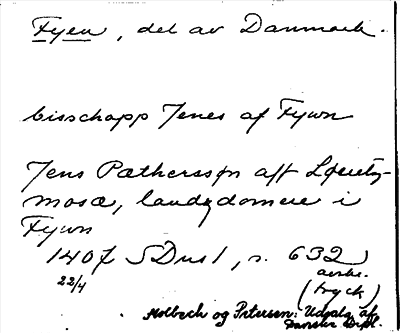 Fyen, del av Danmark.
bisschapp Jenes af Fywn
Jens Pæthersssøn aff Løvety-
mosæ, landzdomere i
Fywn
1407 SDns 1, s. 632
22/4 avskr.
(tryck)
Molbech og Petersen: Udvalg af
Danske Dipl.